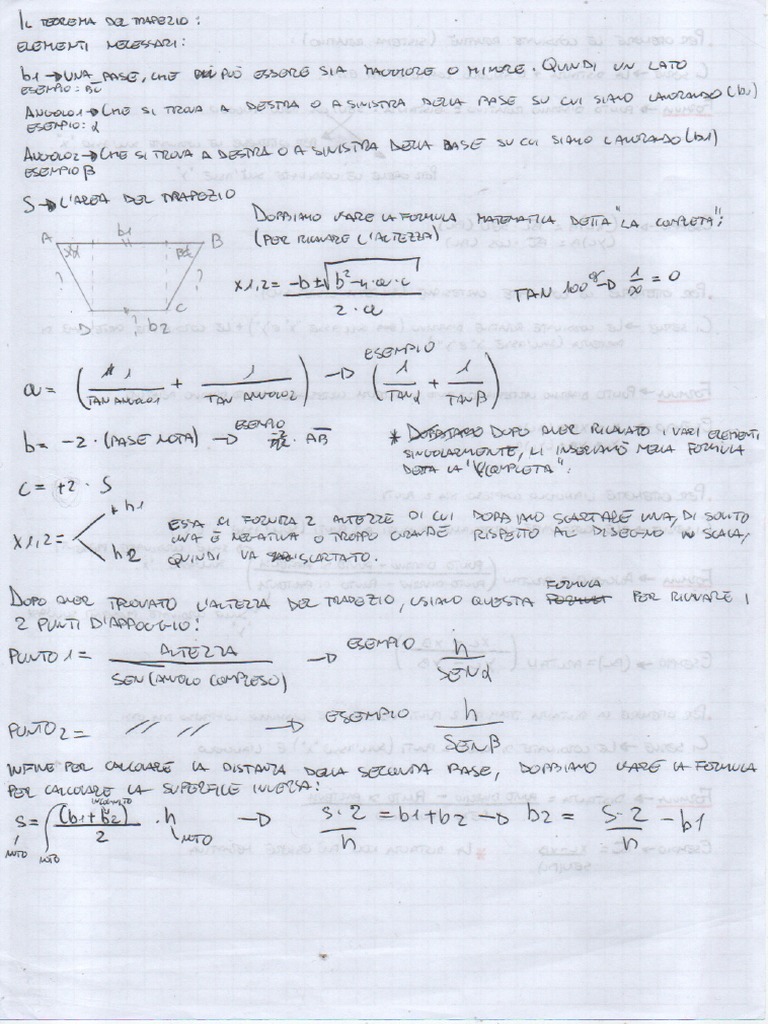 IL TEOREMA DEL TRAPEZIO:
ELEMENTI NECESSARI:
b1 → UNA BASE, CHE PUÒ ESSERE SIA MAGGIORE O MINORE. QUINDI UN LATO
ESEMPIO: BC
ANGOLO1 → CHE SI TROVA A DESTRA O A SINISTRA DELLA BASE SU CUI SIAMO LAVORANDO (b1)
ESEMPIO: α
ANGOLO2 → CHE SI TROVA A DESTRA O A SINISTRA DELLA BASE SU CUI SIAMO LAVORANDO (b1)
ESEMPIO β
S → L'AREA DEL TRAPEZIO
DOBBIAMO USARE LA FORMULA MATEMATICA DETTA "LA COMPLETA":
(PER RICAVARE L'ALTEZZA)
A b1 B
α β
? ?
D b2 C
?
x1,2 = (-b ± √(b² - 4·a·c)) / (2·a)
TAN 100g → 1/∞ = 0
a = (1/TAN ANGOLO1 + 1/TAN ANGOLO2) → ESEMPIO (1/TANα + 1/TANβ)
b = -2 · (BASE NOTA) → ESEMPIO -2 · AB
* DOPO AVER RICAVATO I VARI ELEMENTI
SINGOLARMENTE, LI INSERIAMO NELLA FORMULA
DETTA LA "COMPLETA".
c = +2 · S
x1,2 = + h1
h2
ESSA CI FORNIRA 2 ALTEZZE DI CUI DOBBIAMO SCARTARE UNA, DI SOLITO
UNA È NEGATIVA O TROPPO GRANDE RISPETTO AL DISEGNO IN SCALA,
QUINDI VA SCARTATO.
DOPO AVER TROVATO L'ALTEZZA DEL TRAPEZIO, USIAMO QUESTA FORMULA PER RICAVARE I
2 PUNTI D'APPOGGIO:
PUNTO 1 = ALTEZZA / SEN (ANGOLO COMPRESO) → ESEMPIO h / SENα
PUNTO 2 = // // → ESEMPIO h / SENβ
INFINE PER CALCOLARE LA DISTANZA DELLA SECONDA BASE, DOBBIAMO USARE LA FORMULA
PER CALCOLARE LA SUPERFICIE INVERSA:
INCOGNITO
S = (b1 + b2) / 2 · h → S·2 / h = b1 + b2 → b2 = S·2 / h - b1
NOTO NOTO NOTO